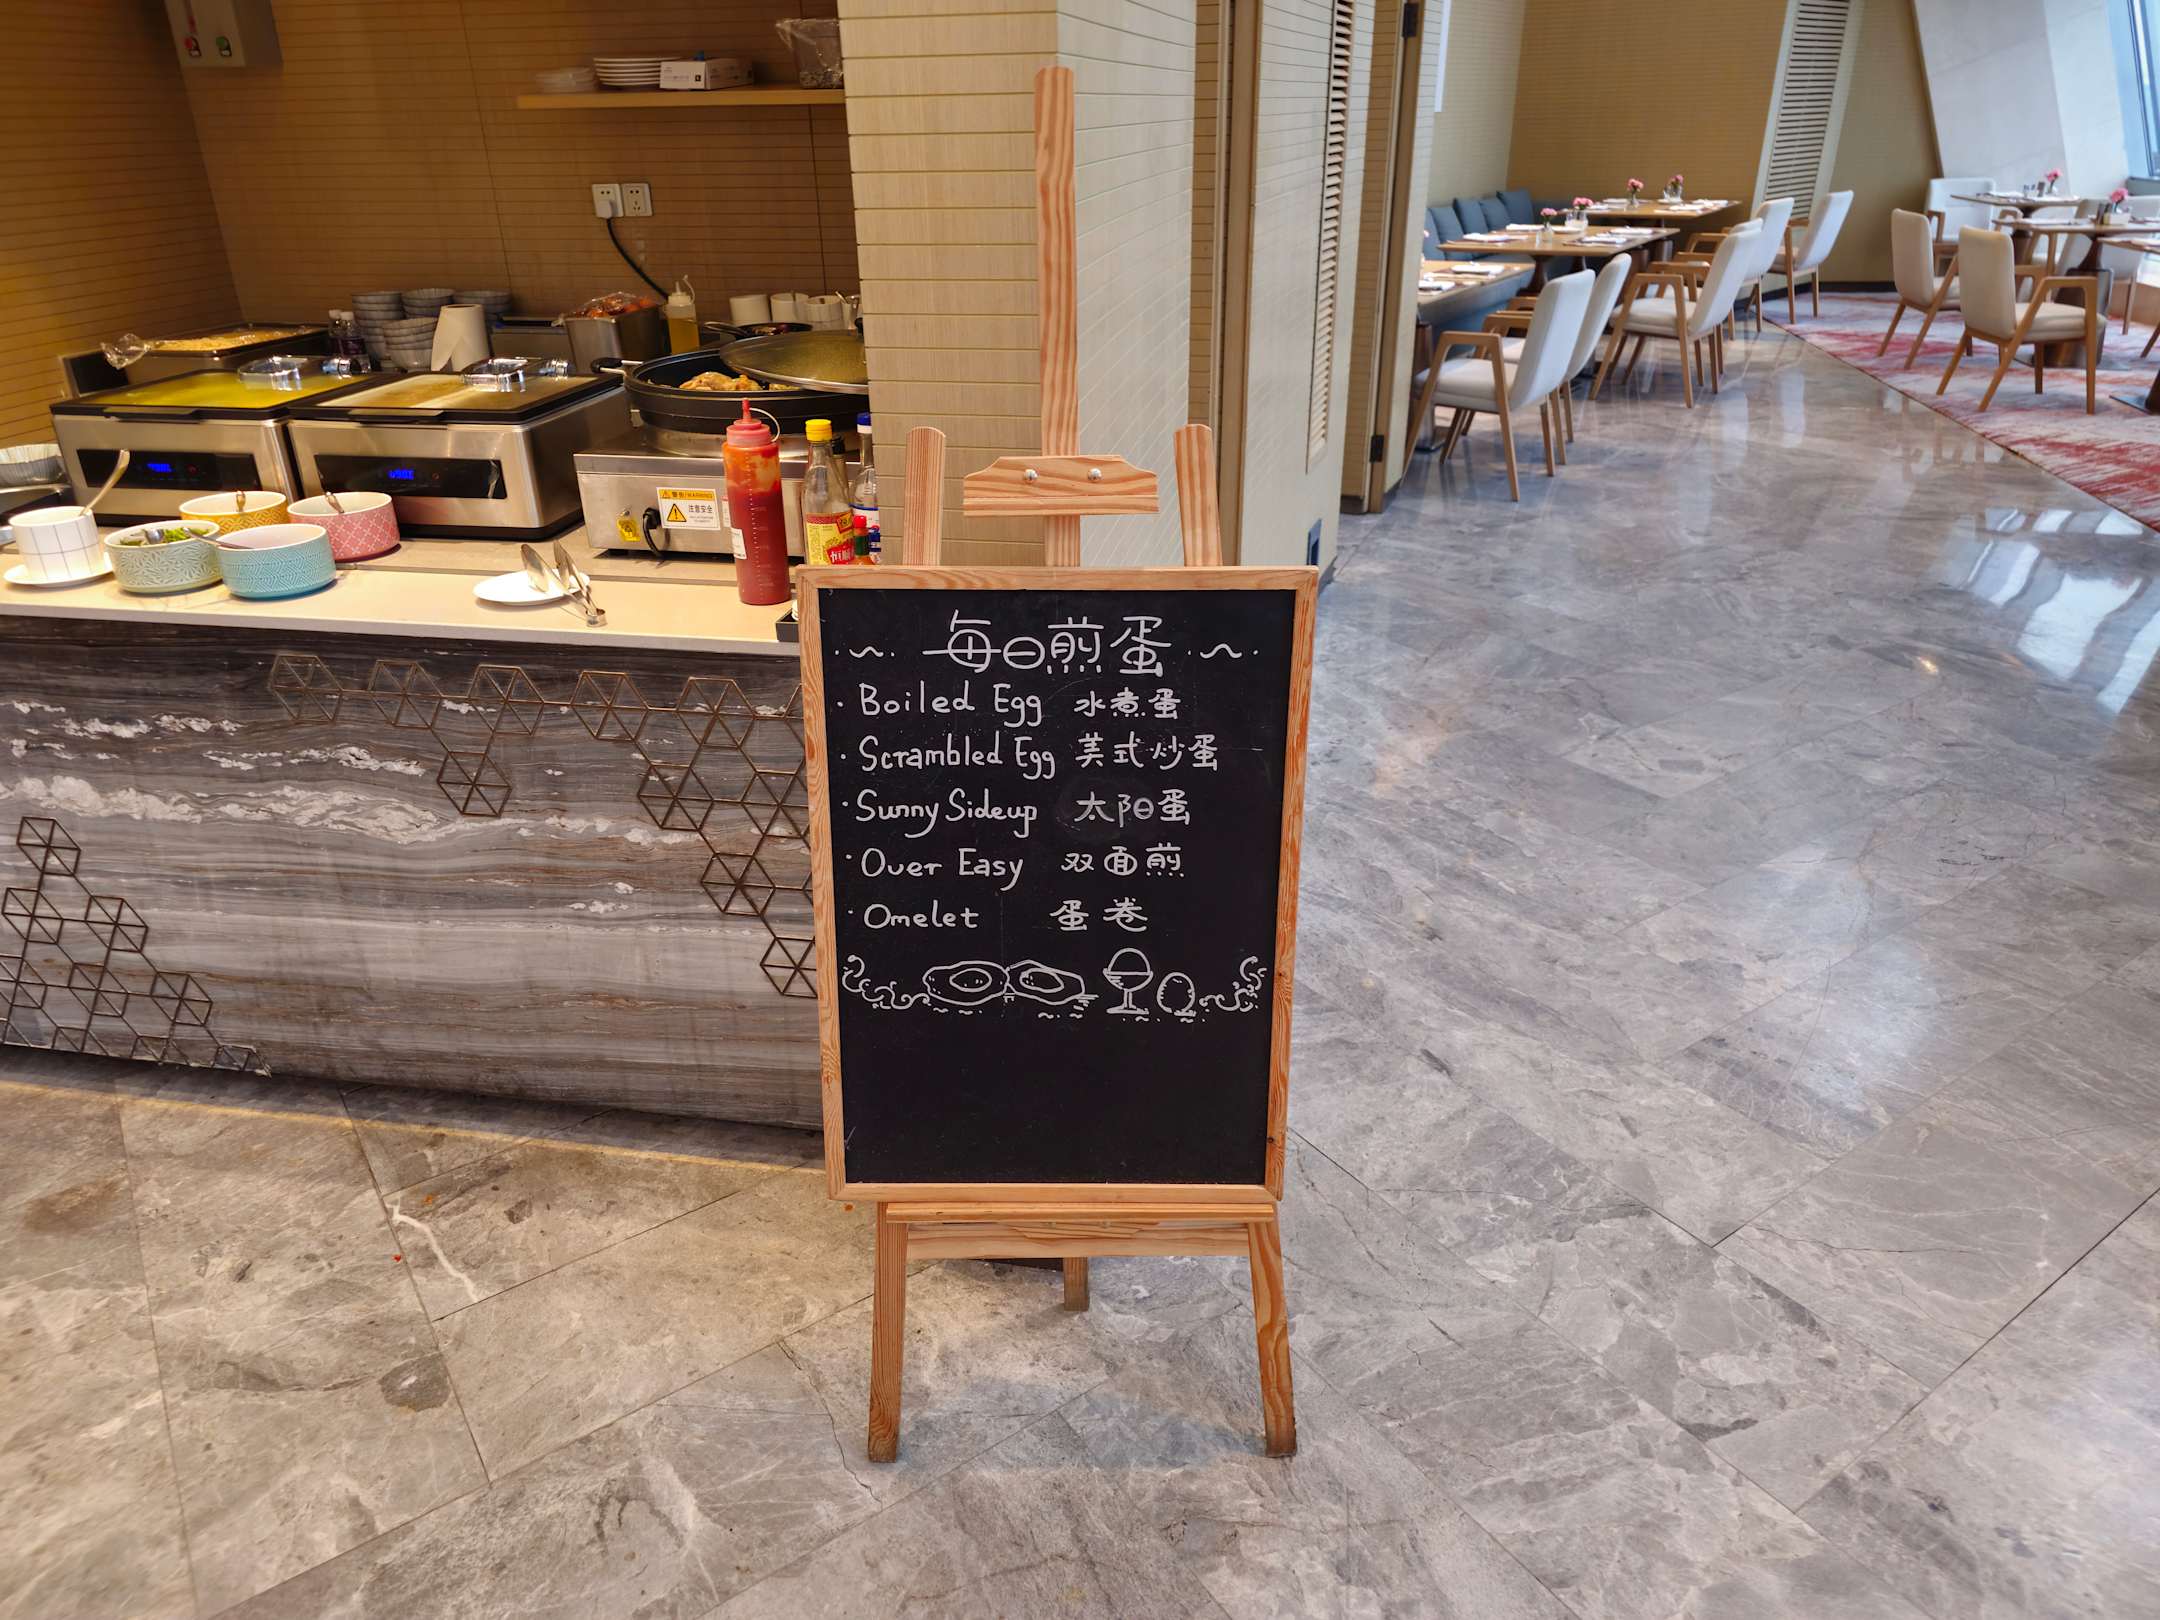 警告/WARNING
注意安全
每日煎蛋
· Boiled Egg 水煮蛋
· Scrambled Egg 美式炒蛋
· Sunny Sideup 太阳蛋
· Over Easy 双面煎
· Omelet 蛋卷